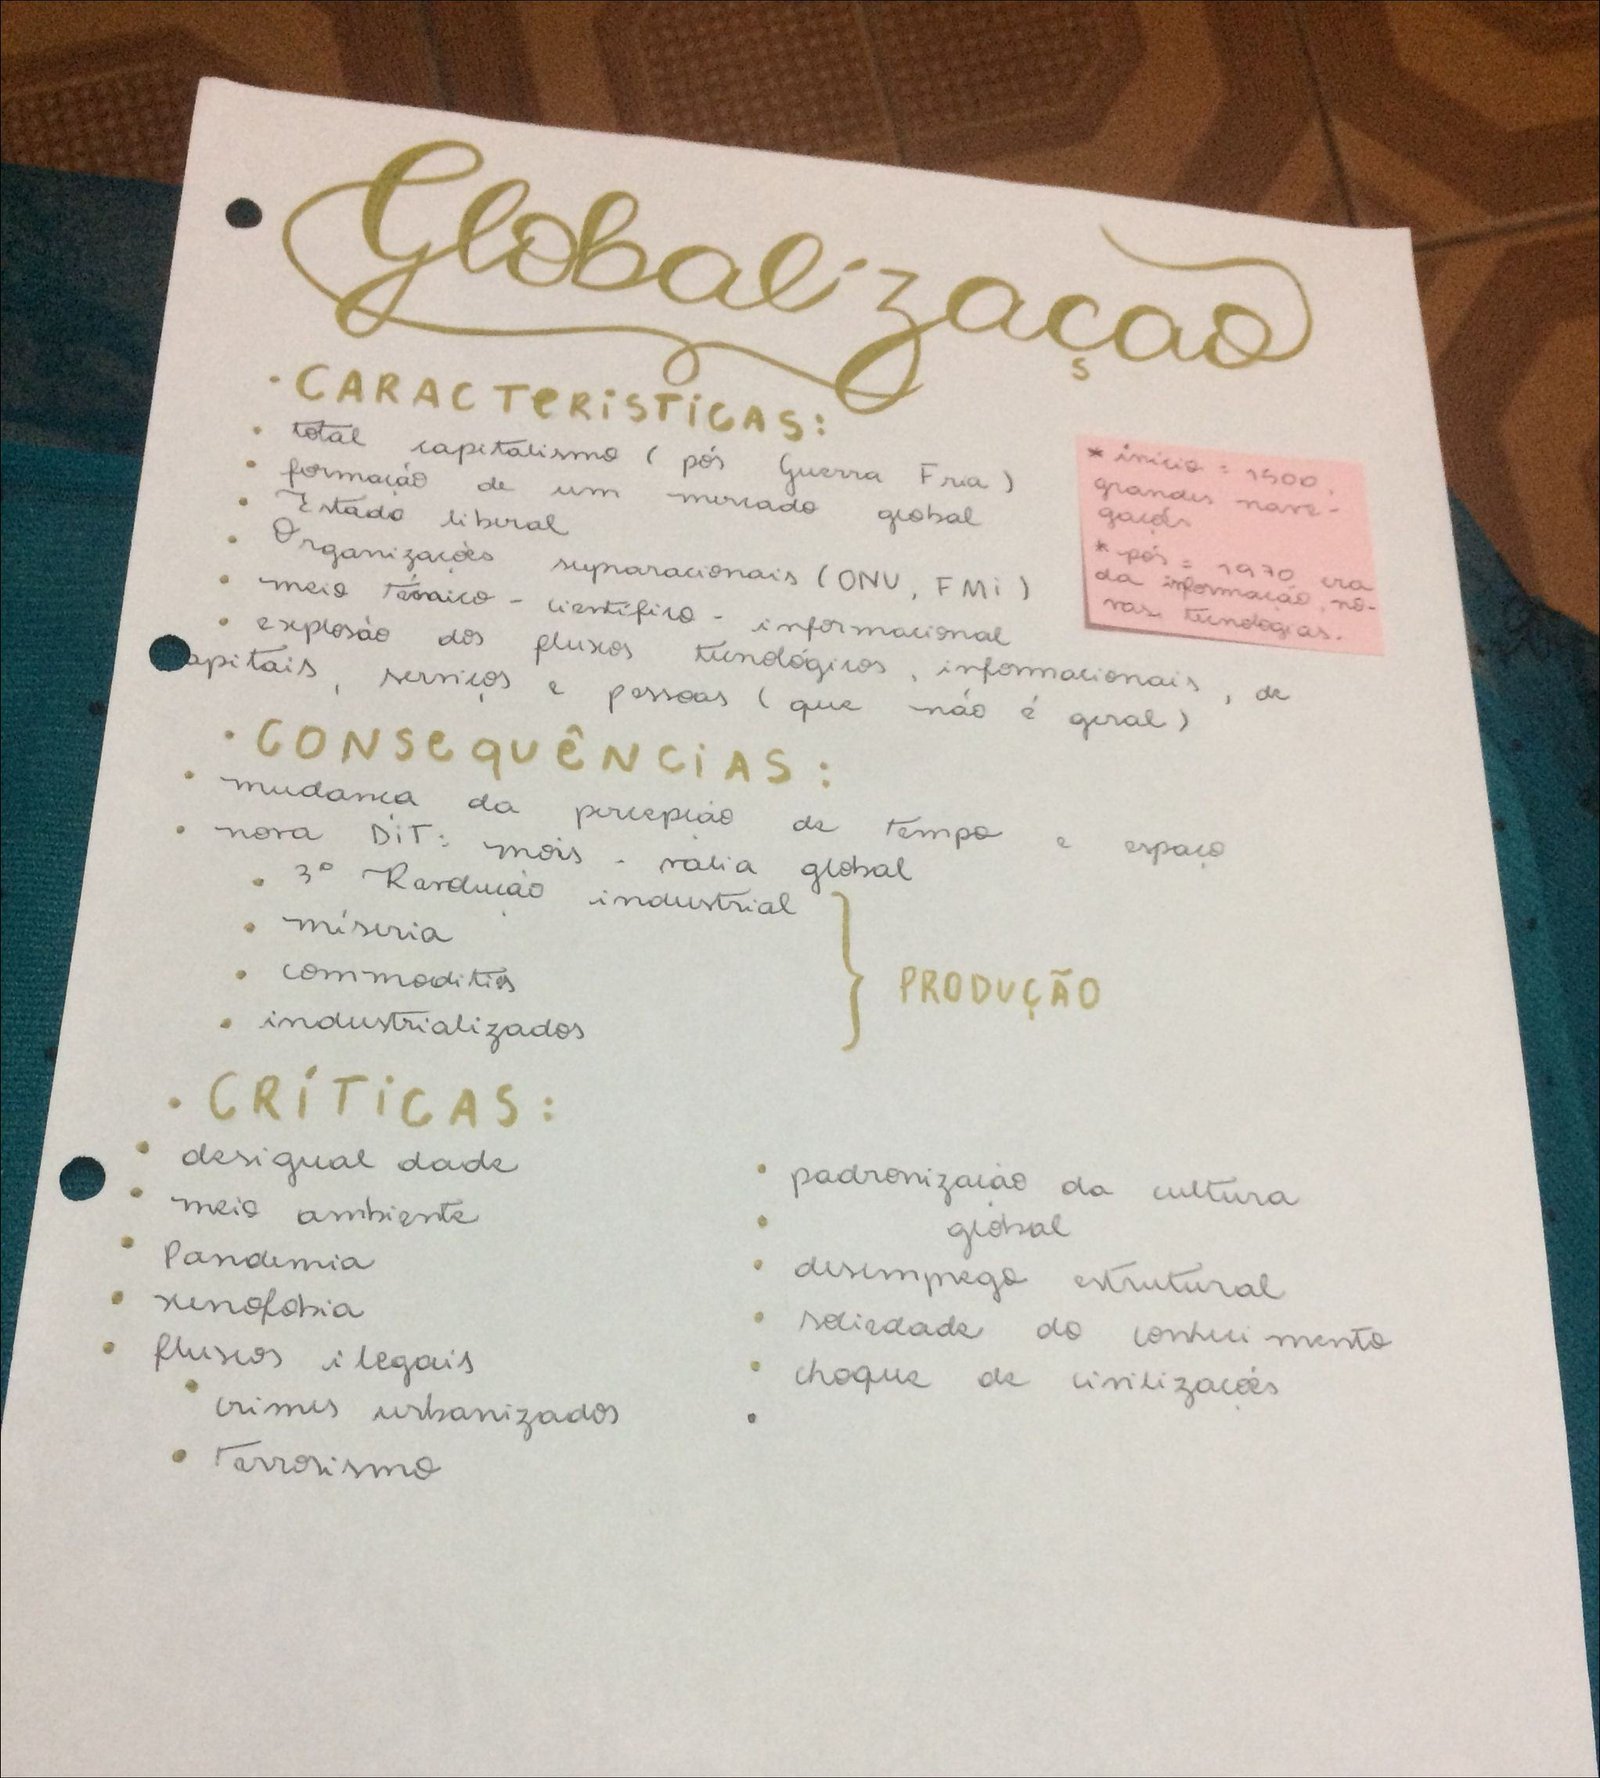 Globalização
• CARACTERISTICAS:
• total capitalismo ( pós Guerra Fria )
• formação de um mercado global
• Estado liberal
• Organizações supranacionais ( ONU, FMi )
• meio técnico - científico - informacional
• explosão dos fluxos tecnológicos, informacionais, de
capitais, serviços e pessoas ( que não é geral )
* início = 1500,
grandes nave-
gações
* pós = 1970 era
da informação, no-
vas tecnologias.
• CONSEQUÊNCIAS:
• mudança da percepção de tempo e espaço
• nova DiT: mais - valia global
• 3º Revolução industrial
• míseria
• commodities
• industrializados
PRODUÇÃO
• CRÍTiCAS:
• desigual dade
• meio ambiente
• Pandemia
• xenofobia
• fluxos ilegais
• crimes urbanizados
• terrorismo
• padronização da cultura
• global
• desemprego estrutural
• sociedade do conheci mento
• choque de civilizações
•